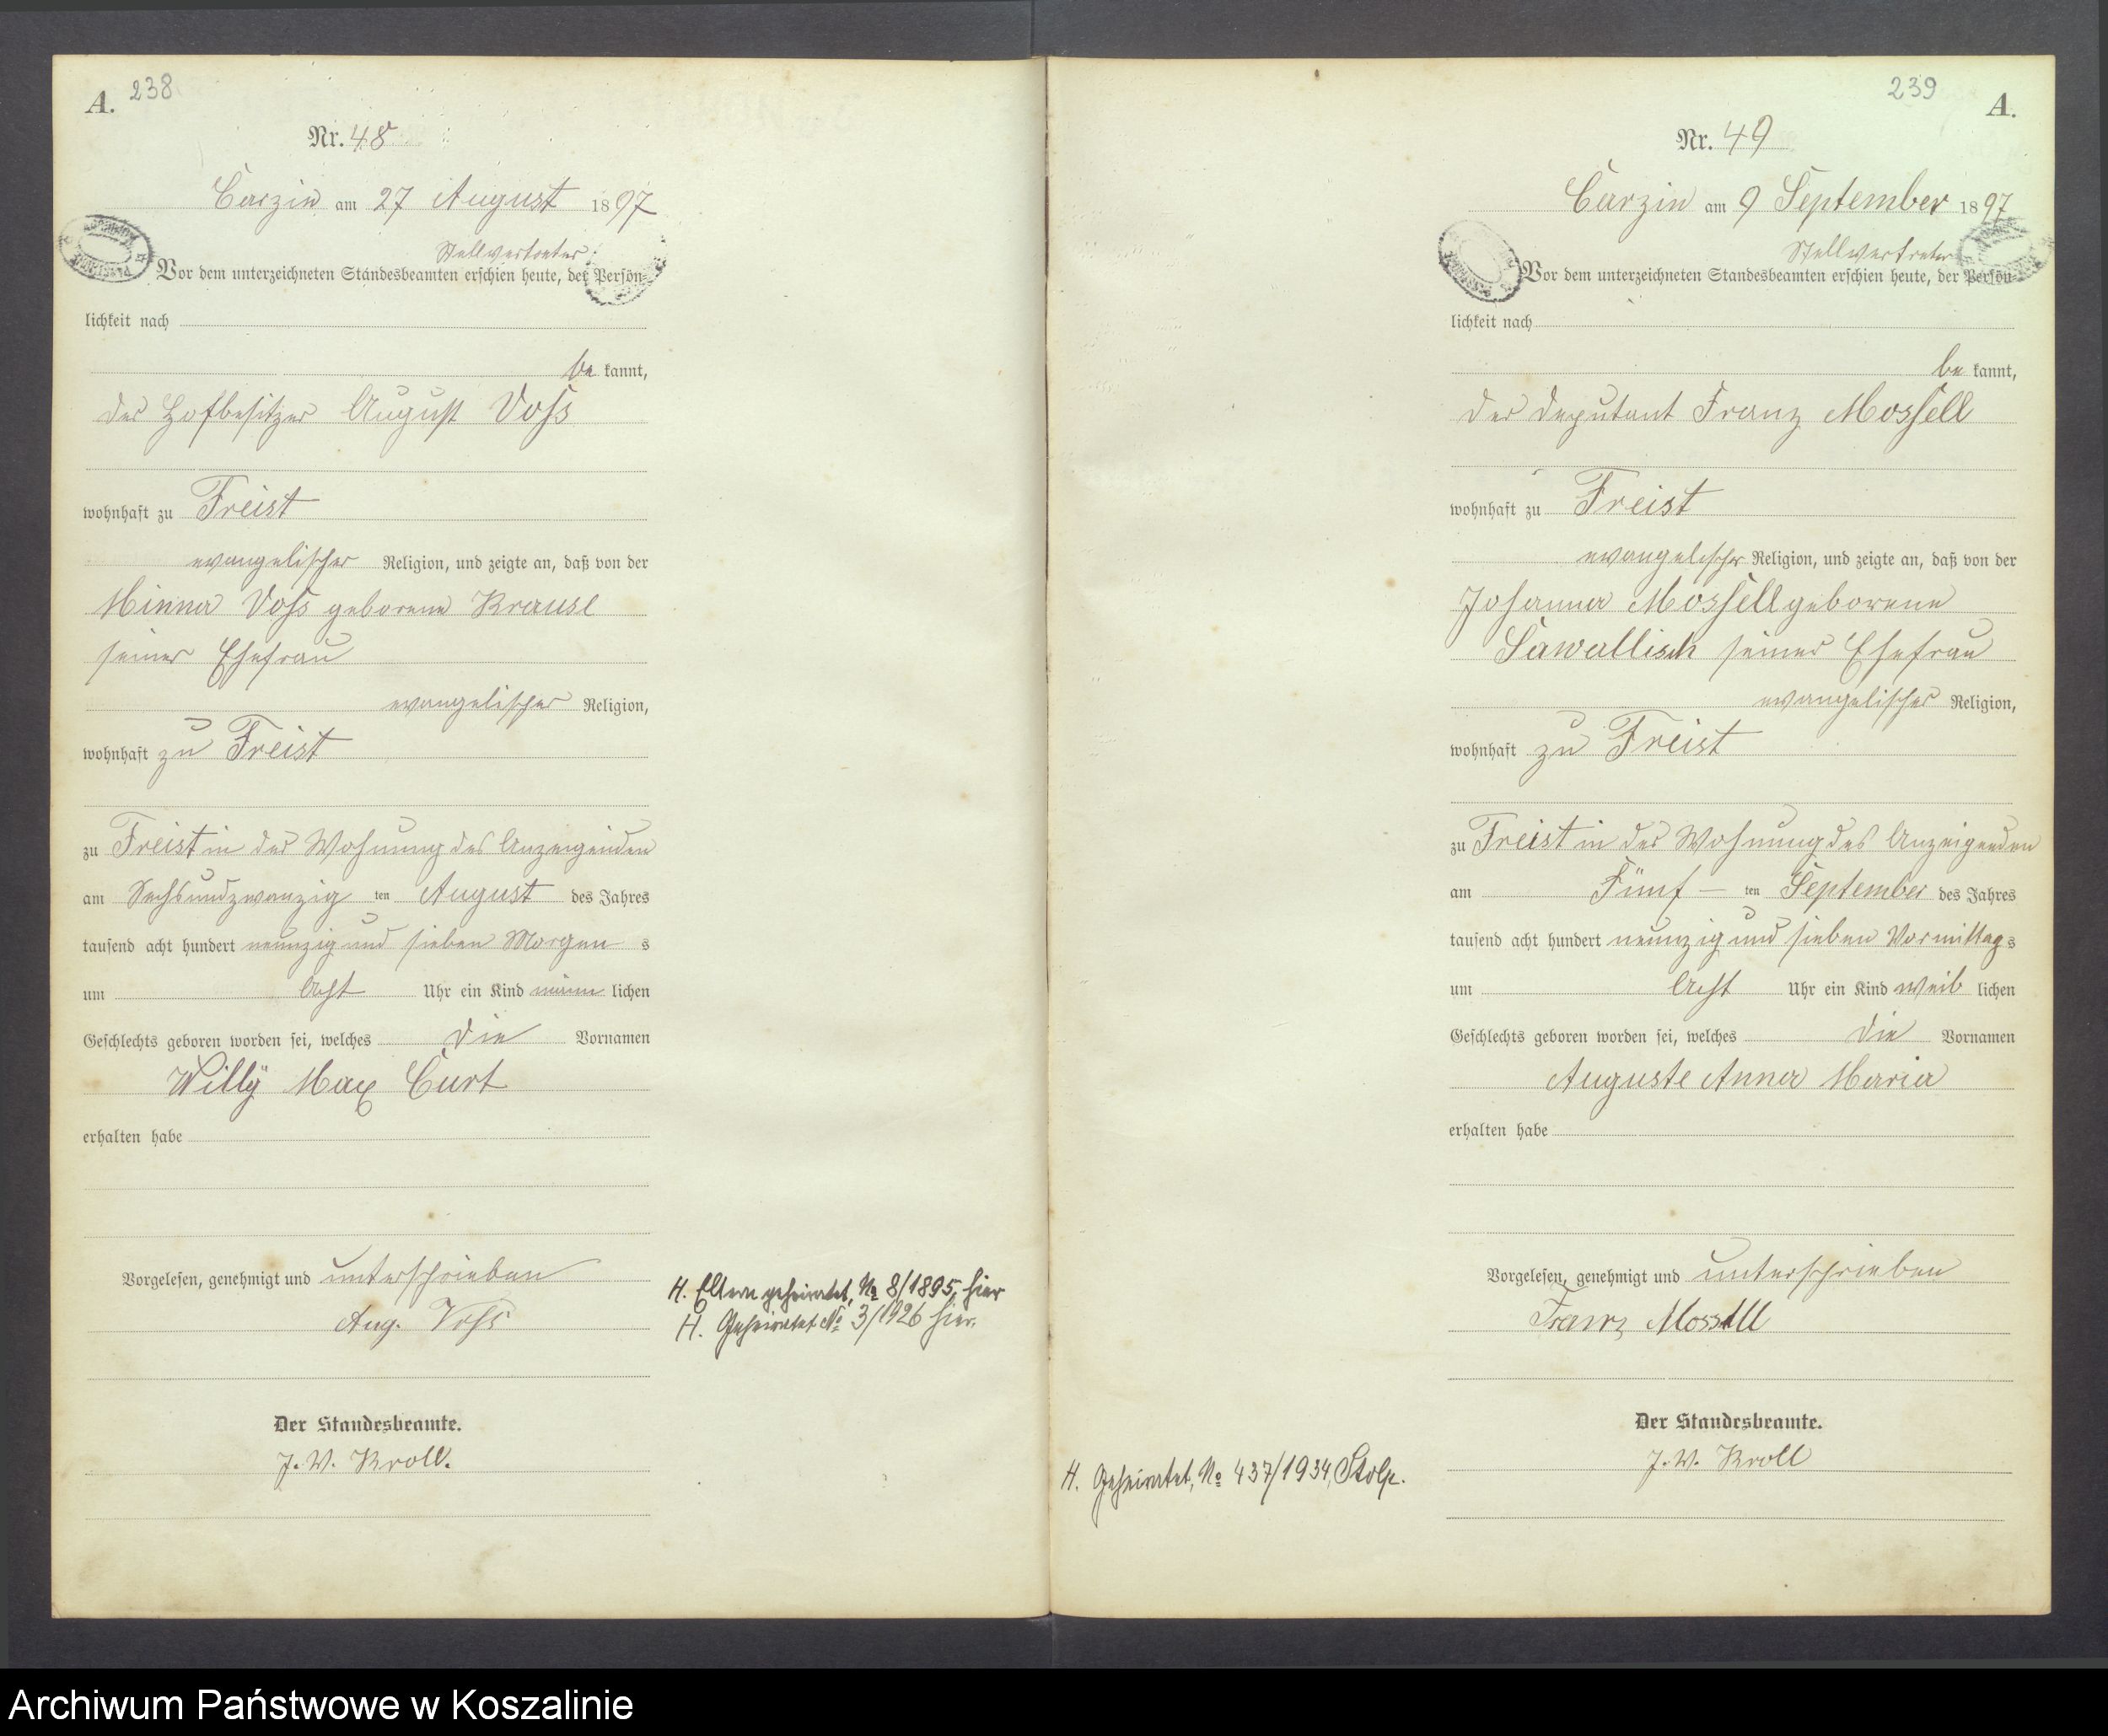 A. 238
Nr. 48
Carzin am 27 August 1897
Stellvertreter
Vor dem unterzeichneten Standesbeamten erschien heute, der Persön-
lichkeit nach
be kannt,
der Hofbesitzer August Voß
wohnhaft zu Freist
evangelischer Religion, und zeigte an, daß von der
Minna Voß geborene Krause
seiner Ehefrau
evangelischer Religion,
wohnhaft zu Freist
zu Freist in der Wohnung des Anzeigenden
am Sechsundzwanzig ten August des Jahres
tausend acht hundert neunzig und sieben Morgen s
um Acht Uhr ein Kind männ lichen
Geschlechts geboren worden sei, welches die Vornamen
Willÿ Max Curt
erhalten habe
Vorgelesen, genehmigt und unterschrieben
Aug. Voß
Der Standesbeamte.
J. V. Kroll.
H. Eltern geheiratet, No 8/1895, hier
H. Geheiratet No 3/1926 hier.
239 A.
Nr. 49
Carzin am 9 September 1897
Stellvertreter
Vor dem unterzeichneten Standesbeamten erschien heute, der Persön-
lichkeit nach
be kannt,
der Deputant Franz Mossell
wohnhaft zu Freist
evangelischer Religion, und zeigte an, daß von der
Johanna Mossell geborene
Sawallisch seiner Ehefrau
evangelischer Religion,
wohnhaft zu Freist
zu Freist in der Wohnung des Anzeigenden
am Fünf – ten September des Jahres
tausend acht hundert neunzig und sieben Vormittag s
um Acht Uhr ein Kind weib lichen
Geschlechts geboren worden sei, welches die Vornamen
Auguste Anna Maria
erhalten habe
Vorgelesen, genehmigt und unterschrieben
Franz Mossell
Der Standesbeamte.
J. V. Kroll
H. Geheiratet, No 437/1934, Stolp.
Archiwum Państwowe w Koszalinie